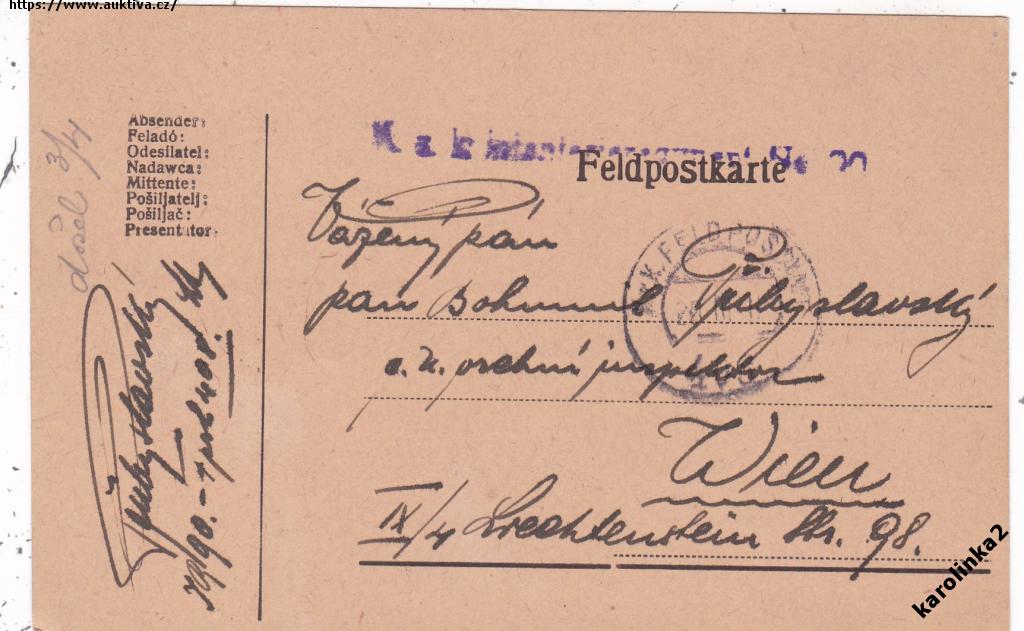 https://www.auktiva.cz/
došel 3/4
Absender:
Feladó:
Odesílatel:
Nadawca:
Mittente:
Pošiljatelj:
Pošiljač:
Presentator
K. u. k. Infanterieregiment No
Feldpostkarte
Vážený pán
pan Bohumil Přibyslavský
c. k. vrchní inspektor
Wien
IX/4 Liechtenstein Str. 98.
Přibyslavský
K. K. FELDPOST
karolinka2